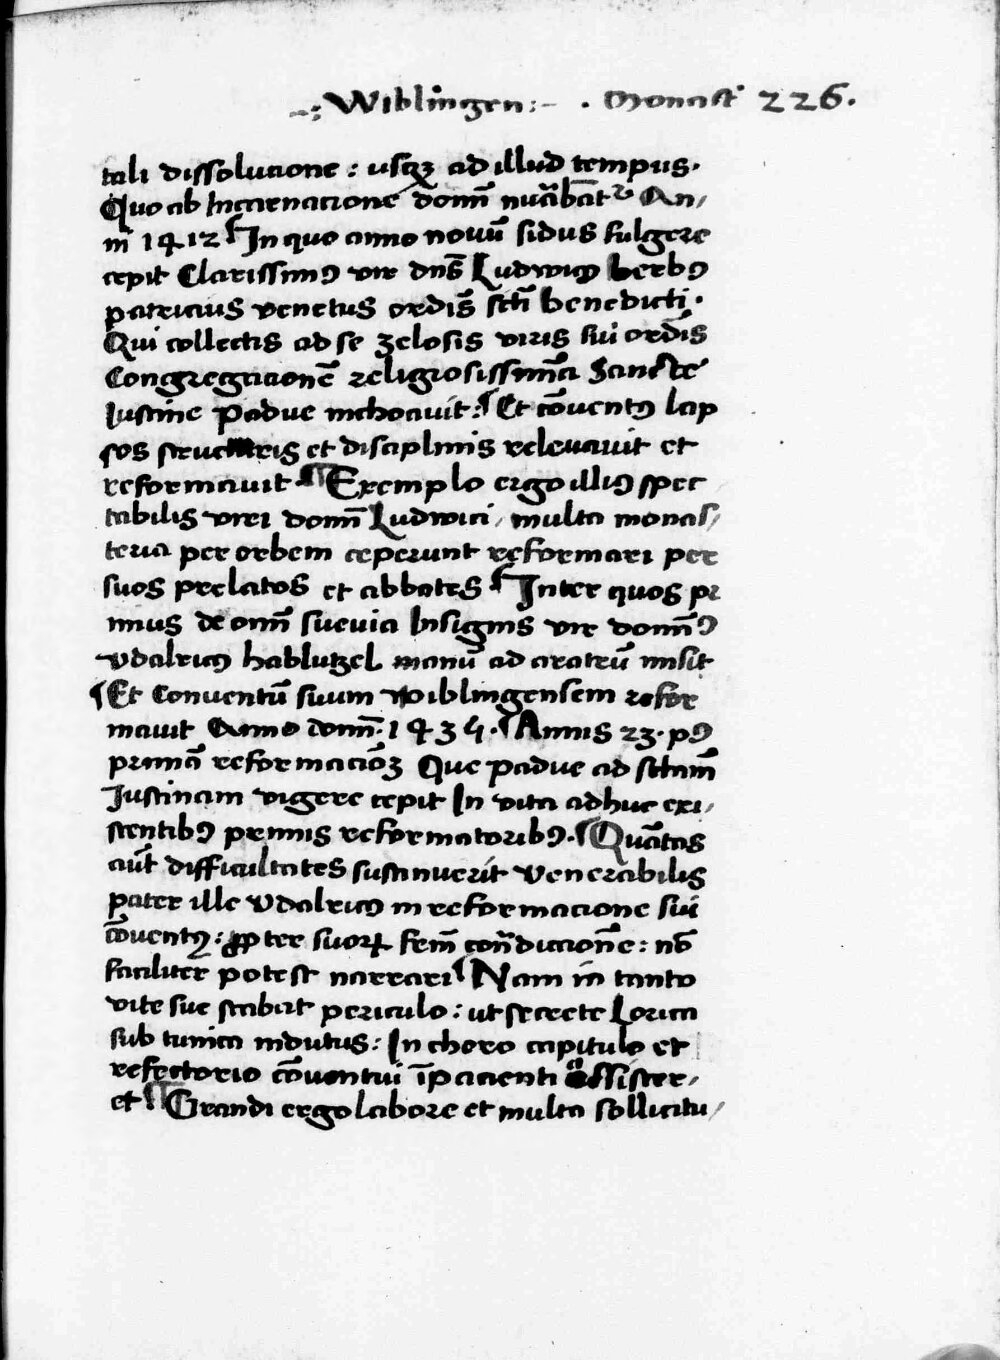 -: Wiblingen :- . Monast 226.
tali dissolucione : usqꝫ ad illud tempus.
Quo ab Incarnacione domī nūābāt᷑ An,
ni 1412 ¶ In quo anno novū sidus fulgere
cepit Clarissimꝰ vir dn̄s Ludwicꝰ berbꝰ
patricius venetus ordīs sctī benedicti.
Qui collectis ad se zelosis viris sui ordīs
Congregacionē religiosissimā Sancte
Iustine Padue inchoavit : ¶ Et cōventꝰ lap
sos et disciplinis relevavit et
reformavit. ¶ Exemplo ergo illiꝰ spec
tabilis viri domī Ludwici, multa monas,
teria per orbem ceperunt reformari per
suos prelatos et abbates ¶ Inter quos pri
mus de omī suevia Insignis vir domīꝰ
Vdalricꝰ hablutzel manū ad aratrū misit
¶ Et Conventū suum wiblingensem refor
mavit Anno domī. 1434. ¶ Annis 23. pꝰ
primā reformaciōꝫ Que Padue ad sctam̄
Iustinam vigere cepit In vita adhuc exi,
stentibꝰ primis reformatoribꝰ. ¶ Quātas
aūt difficultates sustinuerit Venerabilis
pater ille Vdalricꝰ in reformacione sui
cōventꝰ : ꝓpter suoꝝ condicionē : nō
faciliter potest narrari ¶ Nam in tanto
vite sue stabat periculo : ut secrete Lorica
sub tunica indutus : In choro capitulo et
refectorio cōventui īpacienti assister,
et ¶ Grandi ergo labore et multa sollicitu,